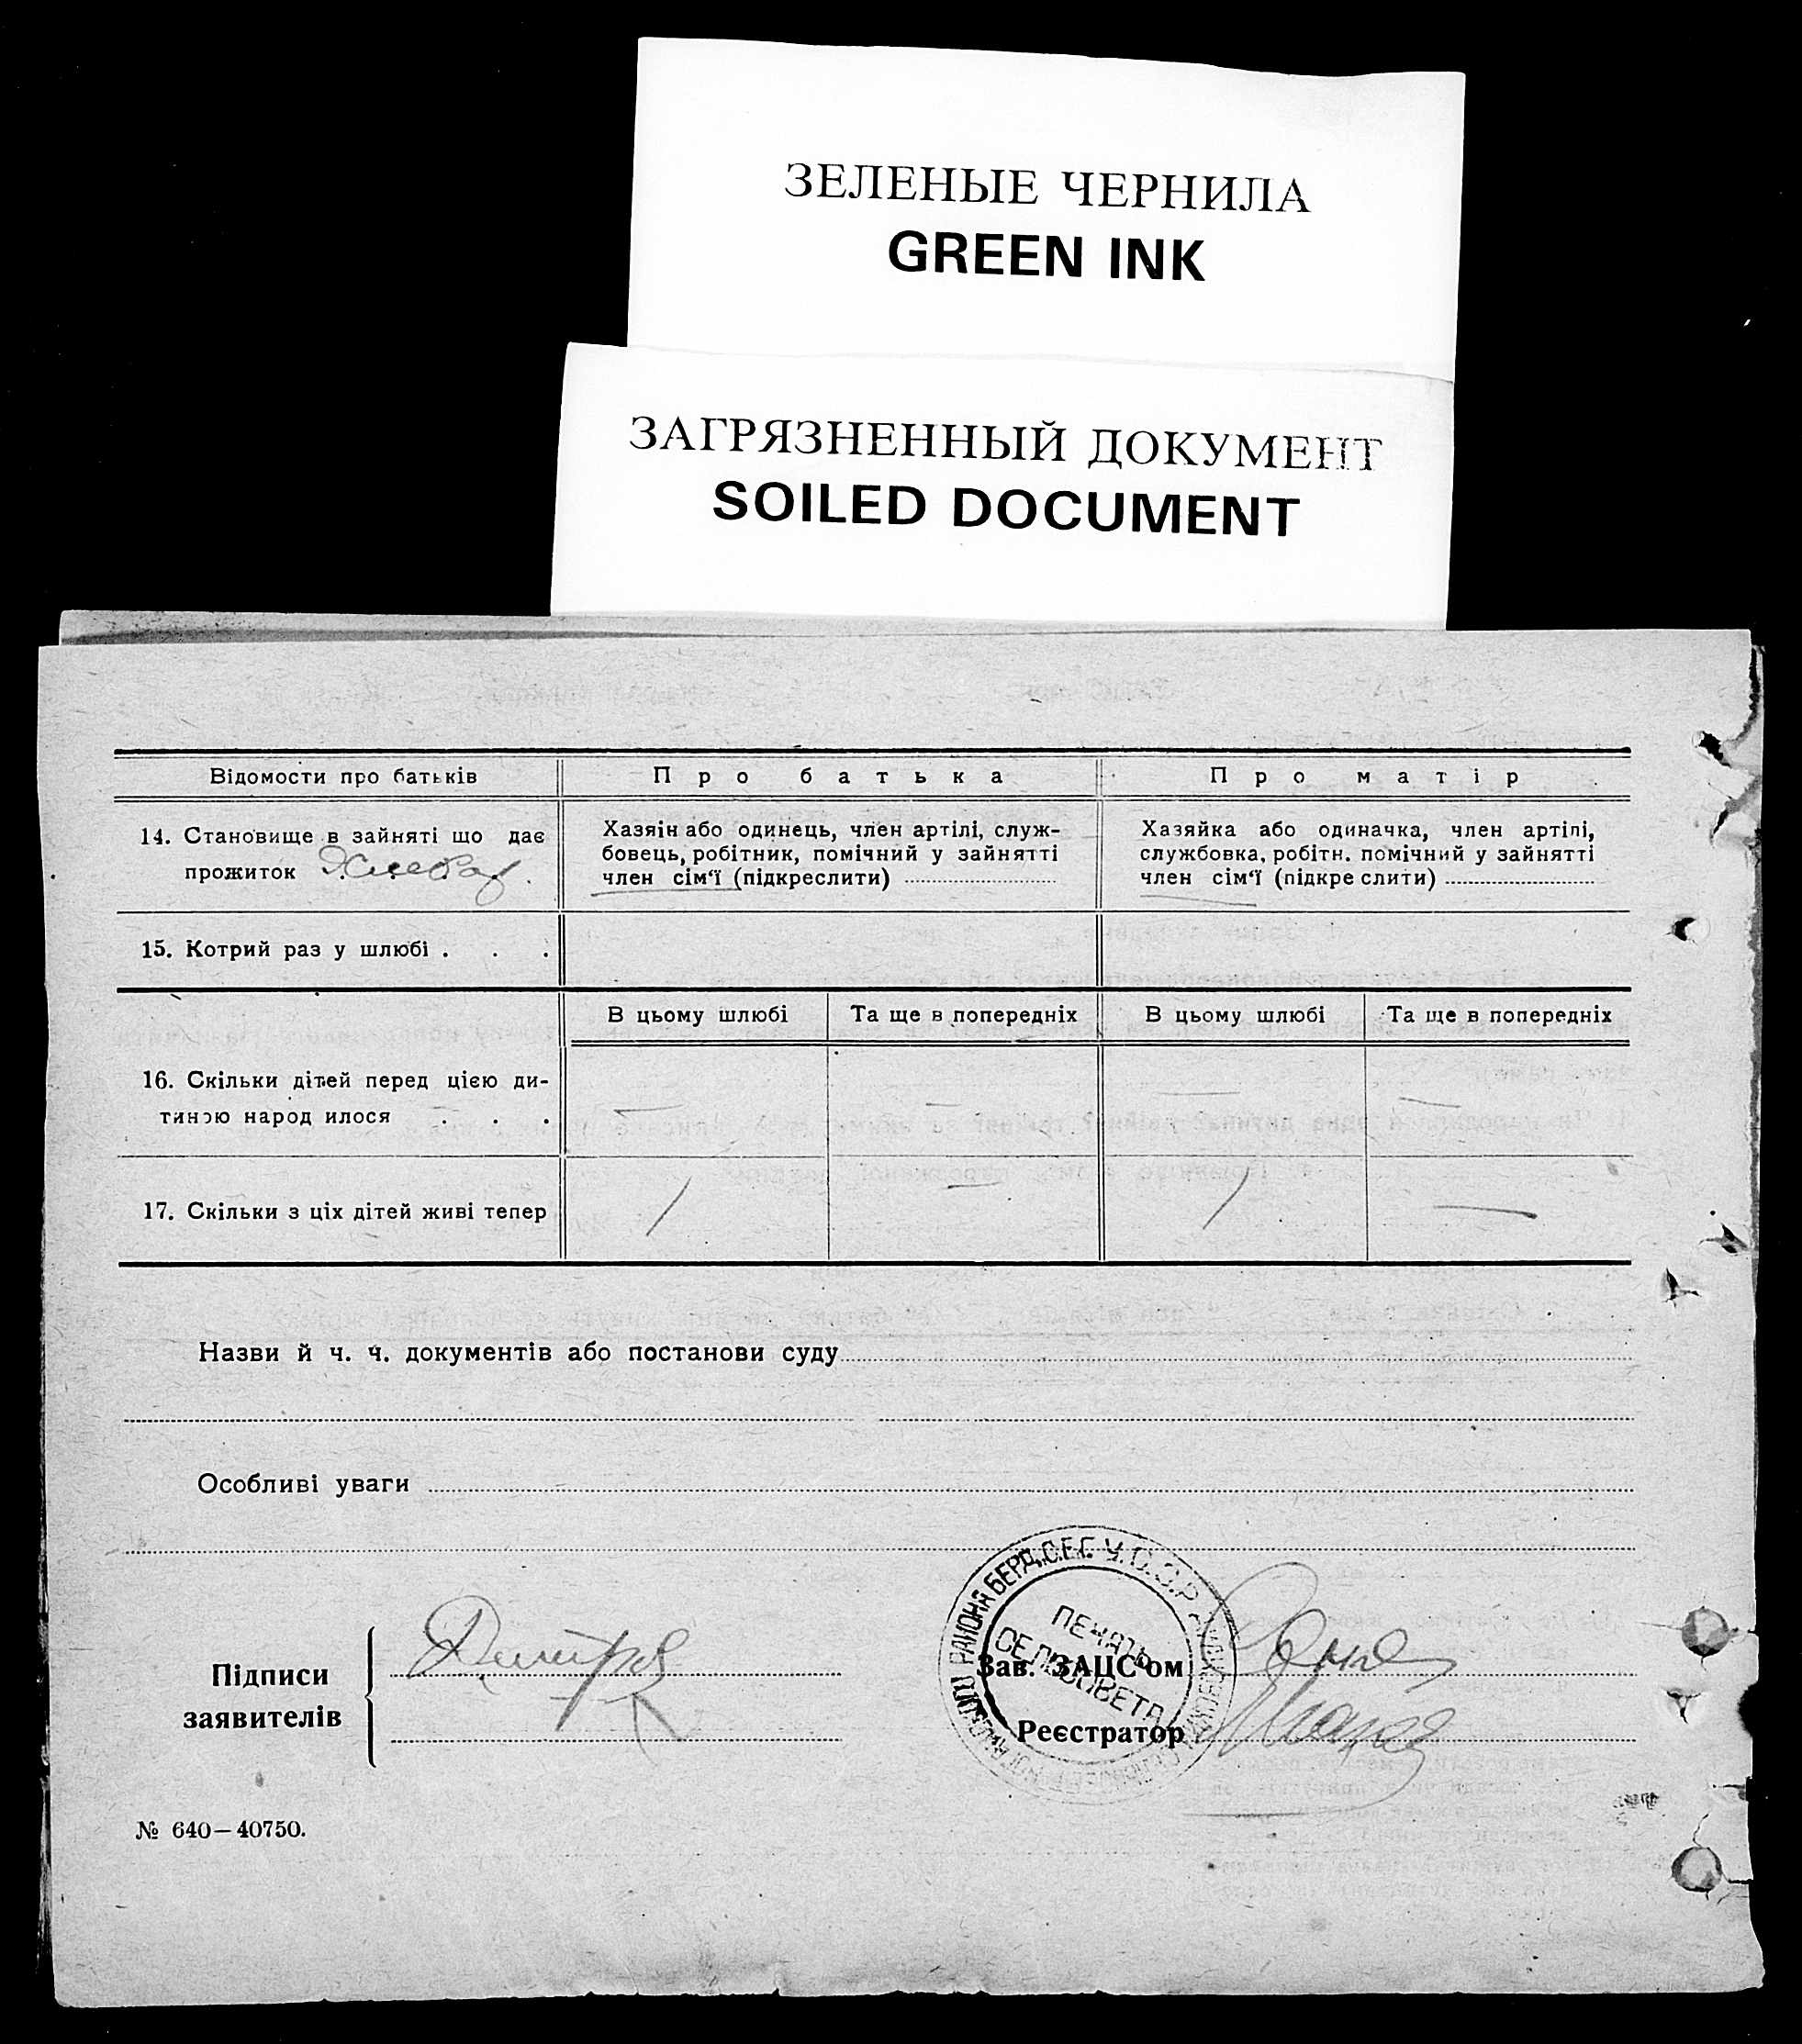 ЗЕЛЕНЫЕ ЧЕРНИЛА
GREEN INK
ЗАГРЯЗНЕННЫЙ ДОКУМЕНТ
SOILED DOCUMENT
Відомости про батьків
Про батька
Про матір
14. Становище в зайняті що дає
прожиток
Хазяін або одинець, член артілі, служ-
бовець, робітник, помічний у зайнятті
член сім‘ї (підкреслити)
Хазяйка або одиначка, член артілі,
службовка, робітн. помічний у зайнятті
член сім‘ї (підкре слити)
15. Котрий раз у шлюбі . . .
В цьому шлюбі
Та ще в попередніх
В цьому шлюбі
Та ще в попередніх
16. Скільки дітей перед цією ди-
тиною народ илося . . .
— — — —
17. Скільки з ціх дітей живі тепер
/ — / —
Назви й ч. ч. документів або постанови суду
Особливі уваги
РАЙОНА БЕРД.О.Е.Г. У.С.С.Р.
ПЕЧАТЬ
СЕЛЬСОВЕТА
Підписи
заявителів
Зав. ЗАЦС‘ом
Реєстратор
№ 640—40750.